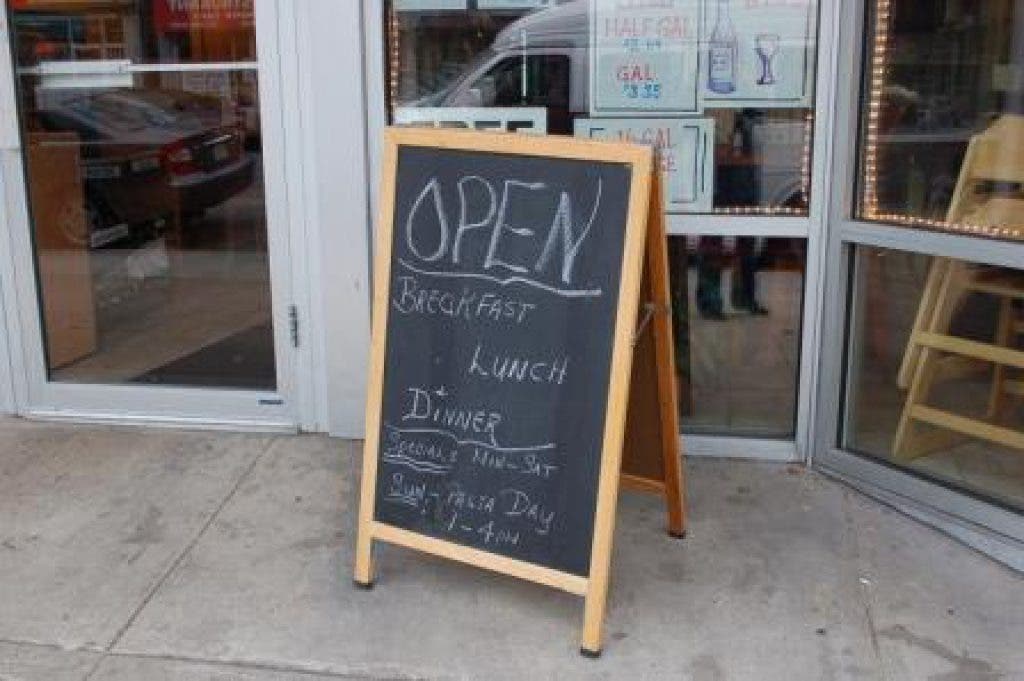 HALF GAL
GAL
$3.35
OPEN
BREAKFAST
LUNCH
+
DINNER
SPECIALS MON-SAT
SUN - PASTA DAY
1-4PM